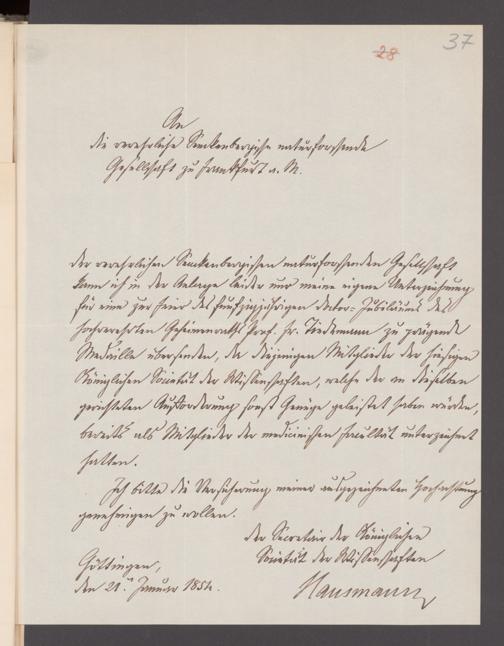 37
28
An
die verehrliche Senckenbergische naturforschende
Gesellschaft zu Frankfurt a. M.
Der verehrlichen Senckenbergischen naturforschenden Gesellschaft
kann ich in der Anlage leider nur meine eigene Unterzeichnung
für eine zur Feier des fünfzigjährigen Doctor-Jubiläums des
hochverehrten Geheimenraths Prof. Dr. Tiedemann zu prägende
Medaille übersenden, da diejenigen Mitglieder der hiesigen
Königlichen Societät der Wissenschaften, welche der an dieselben
gerichteten Aufforderung sonst Genüge geleistet haben würden,
bereits als Mitglieder der medicinischen Facultät unterzeichnet
hatten.
Ich bitte die Versicherung meiner ausgezeichneten Hochachtung
genehmigen zu wollen.
Der Secretair der Königlichen
Societät der Wissenschaften
Göttingen,
den 21. Januar 1854.
Hausmann